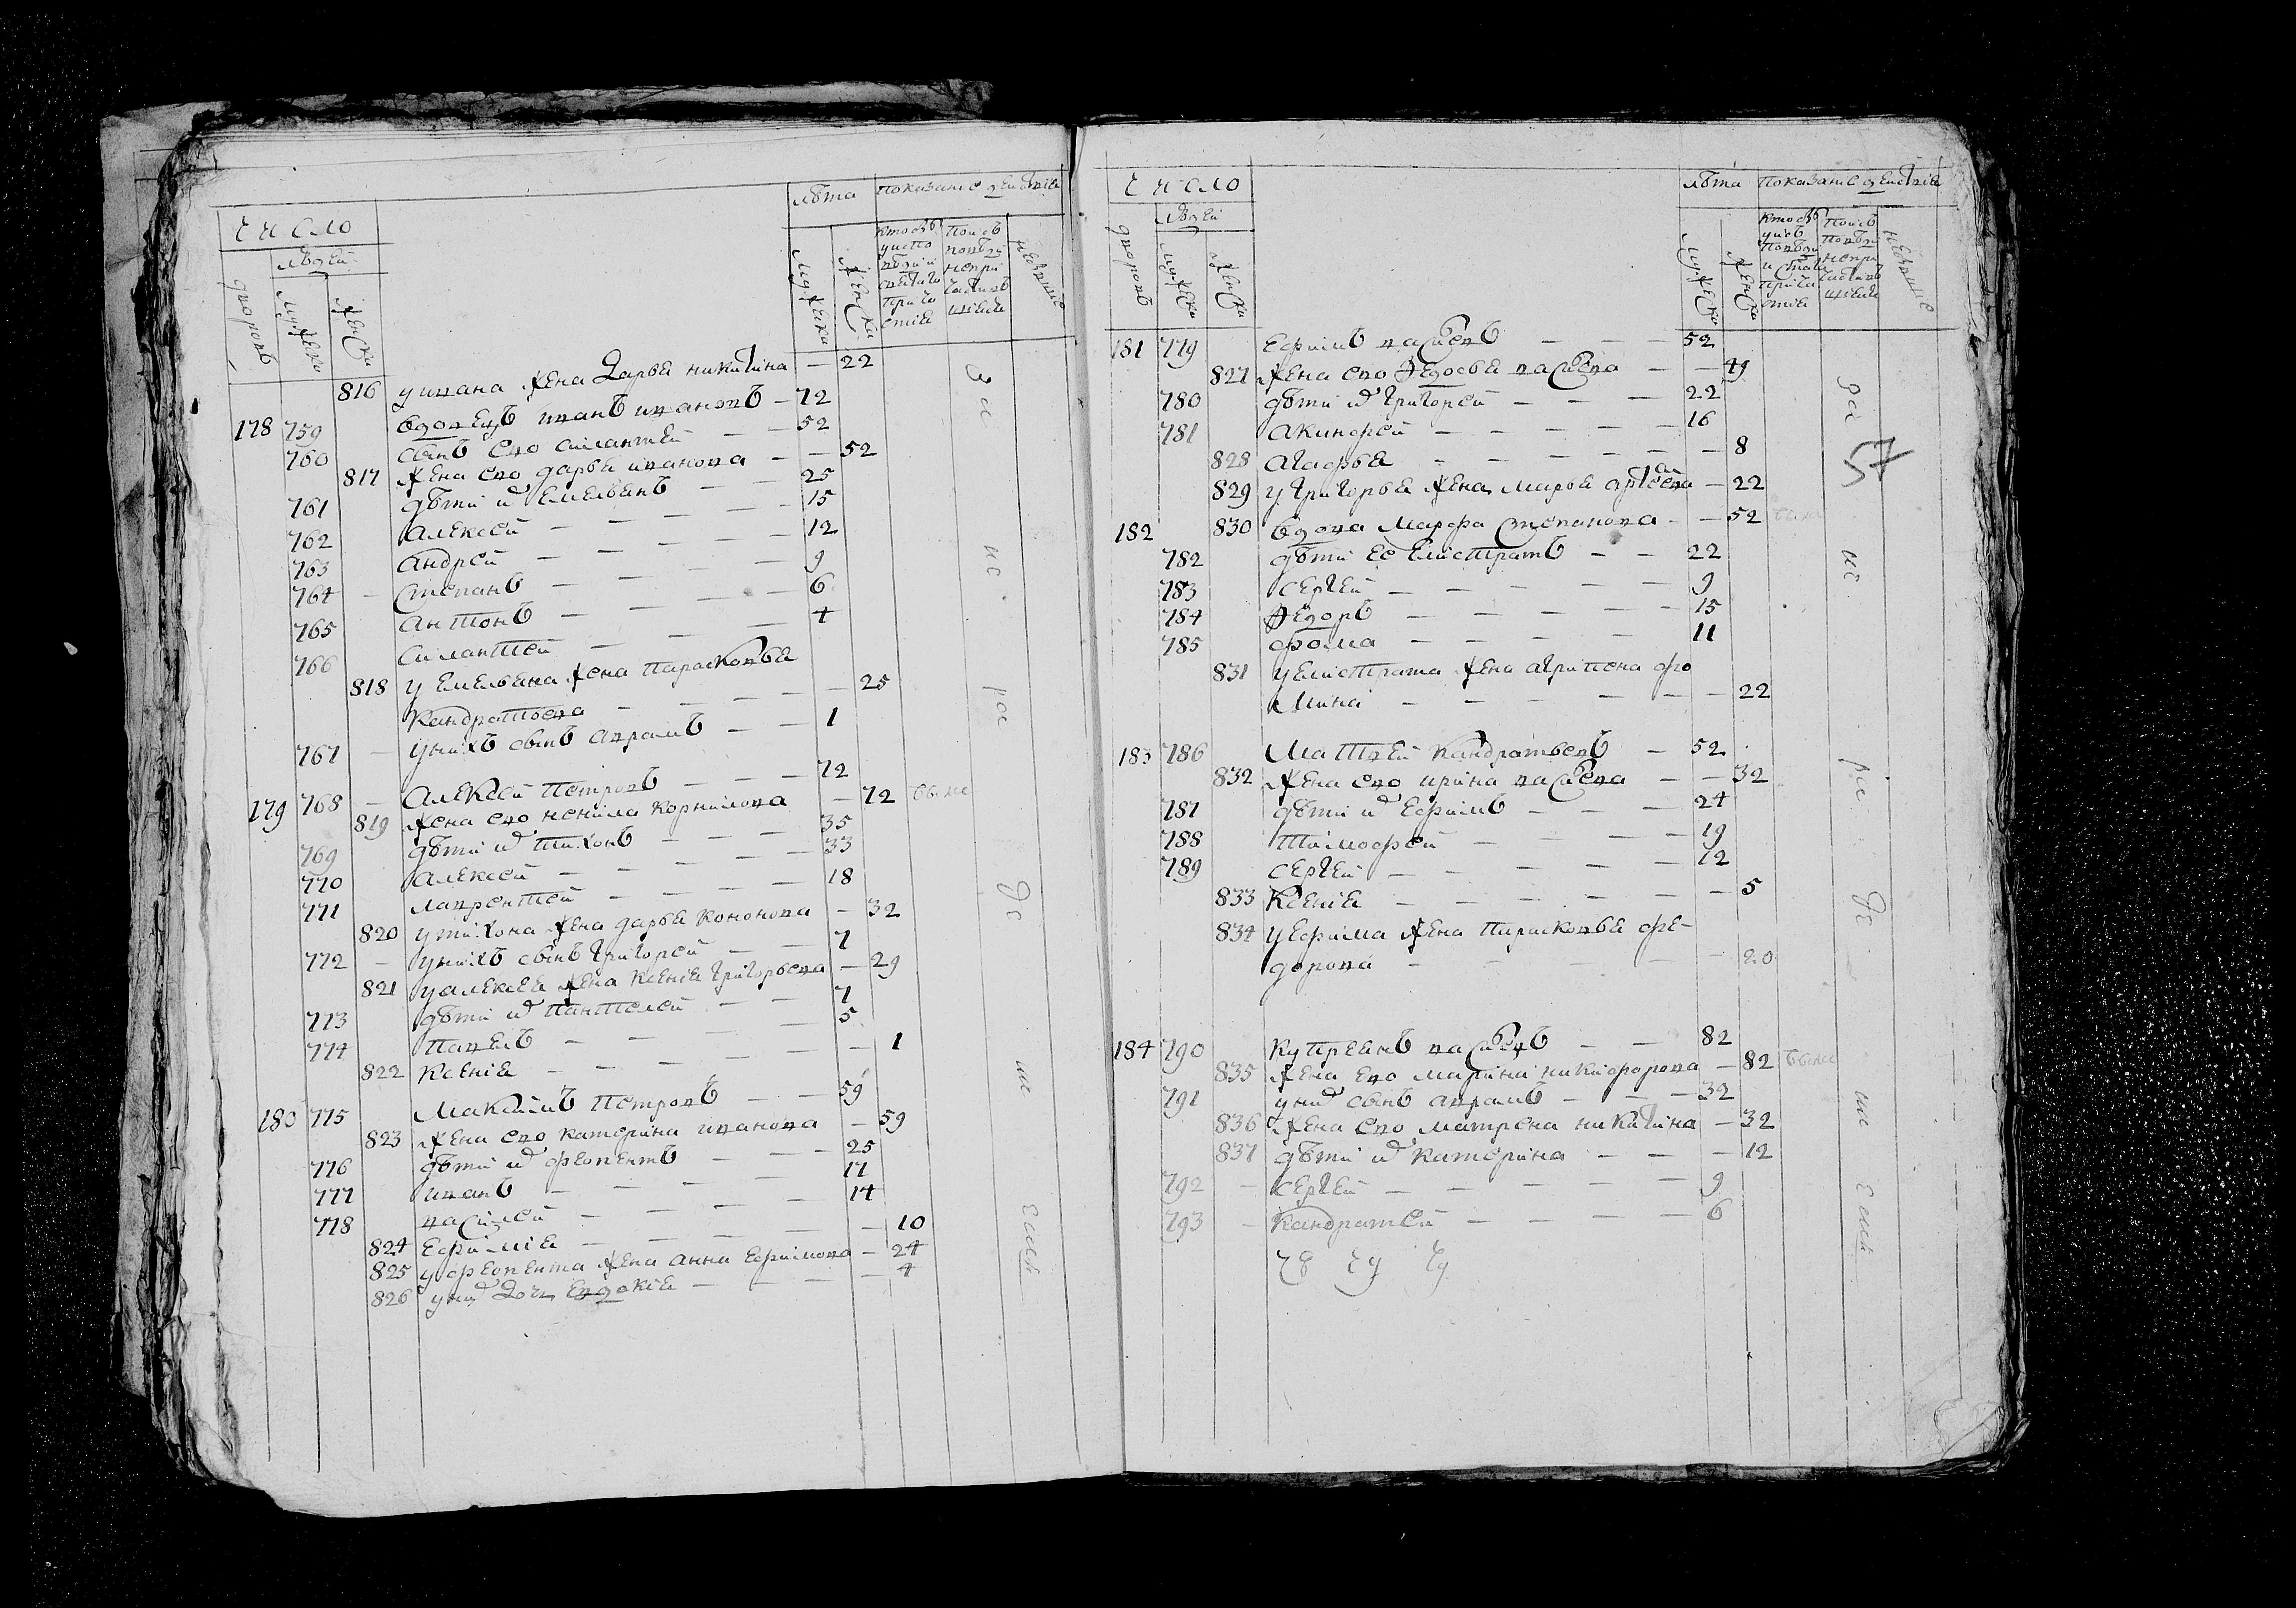 число
людей
дворовъ
мужеска
женска
лѣта
показание действія
мужеска
женска
816 у ивана жена дарья никитина — 22
178 759 вдовецъ иванъ ивановъ — 72
760 сынъ ево силантей — — 52
817 жена ево дарья иванова — — 52
761 дѣти их емельянъ — — 25
762 алексей — — — 15
763 андрей — — — 12
764 степанъ — — — 9
765 антонъ — — — 6
766 силантей — — 4
818 у емельяна жена парасковья
кандратьева — — — 25
767 — у нихъ сынъ аврамъ — — 1
179 768 — алексей петровъ — — — 72
819 жена ево ненила корнилова — 72
769 дѣти их тихонъ — — — 35
770 алексей — — — 33
771 лаврентей — — — 18
820 у тихона жена дарья кононова — 32
772 — у нихъ сынъ григорей — — 7
821 у алексея жена ксения григорьева — 29
773 дѣти их пантелей — — 7
774 павелъ — — — 5
822 ксения — — — 1
180 775 максимъ петровъ — — 59
823 жена ево катерина иванова — 59
776 дѣти их феопентъ — — 25
777 иванъ — — — 17
778 василей — — — 14
824 ефимія — — — 10
825 у феопента жена анна ефимова — 24
826 у них дочь евдокія — — 4
число
людей
дворовъ
мужеска
женска
лѣта
показание действія
мужеска
женска
181 779 ефимъ васильевъ — — — 52
827 жена ево федосья васильева — — 49
780 дѣти их григорей — — — 22
781 акинфей — — — — 16
57
828 агафья — — — — 8
829 у григорья жена марья — 22
182 830 вдова марфа степанова — — 52
782 дѣти ее елистратъ — — 22
783 сергей — — — — 9
784 федоръ — — — — 15
785 фома — — — — 11
831 у елистрата жена агрипена фо
мина — — — — 22
183 786 матвей кандратьевъ — 52
832 жена ево ирина васильева — — 32
787 дѣти их ефимъ — — — 24
788 тимофей — — — 19
789 сергей — — — — 12
833 ксения — — — — 5
834 у ефима жена парасковья фе-
дорова — — — — 20
184 790 куприянъ васильевъ — — 82
835 жена ево марина никифорова — 82
791 у них сынъ аврамъ — — — 32
836 жена ево матрена никитина — 32
837 дѣти их катерина — — — 12
792 — сергей — — — — 9
793 — кандратей — — — — 6